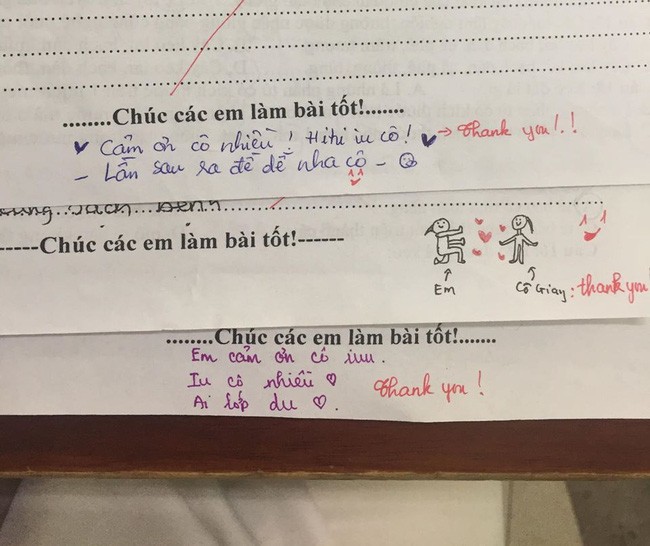 ........Chúc các em làm bài tốt!.......
Cảm ơn cô nhiều! Hihi iu cô! → Thank you!.!
- Lần sau ra đề dễ nha cô -
-----Chúc các em làm bài tốt!------
Em
Cô Giang: thank you!
........Chúc các em làm bài tốt!.......
Em cảm ơn cô iuu.
Iu cô nhiều ♡ Thank you!
Ai lớp du ♡.